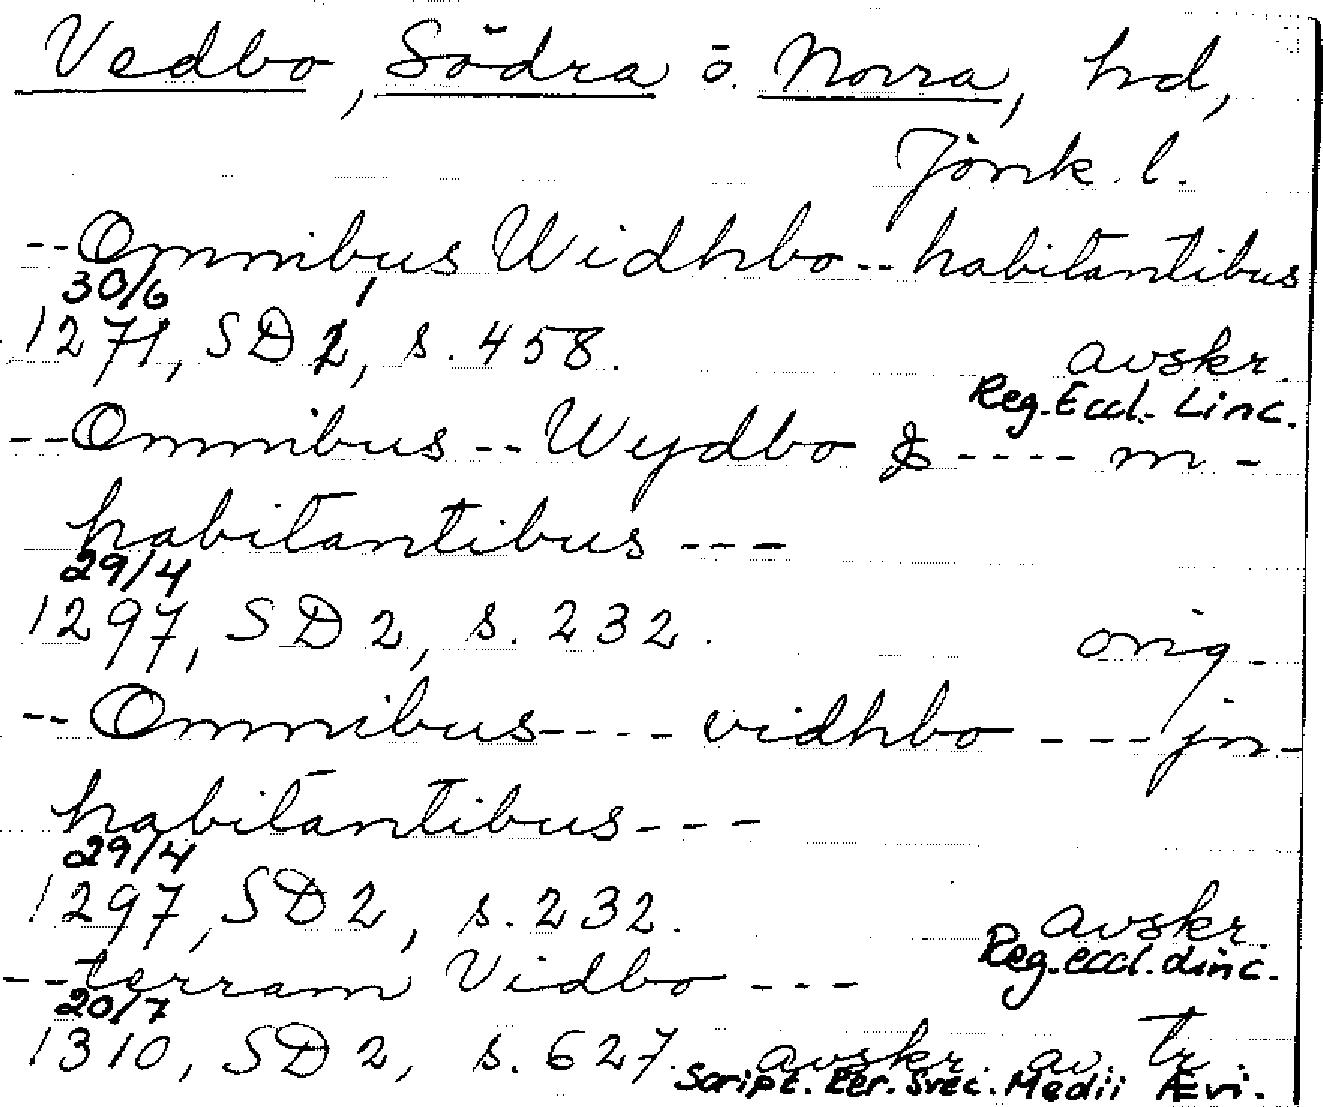 Vedbo, Södra o. Norra, hd,
Jönk. l.
--Omnibus Widhbo--habitantibus
30/6
1271, SD 1, s. 458. avskr.
Reg. Eccl. Linc.
--Omnibus--Wydbo & ---- in -
habitantibus ---
29/4
1297, SD 2, s. 232. orig.
--Omnibus---- vidhbo ---jn-
habitantibus---
29/4
1297, SD 2, s. 232. avskr.
Reg. eccl. Linc.
--terram Vidbo ---
20/7
1310, SD 2, s. 627. avskr. av tr.
Script. Rer. Svec. Medii Ævi.